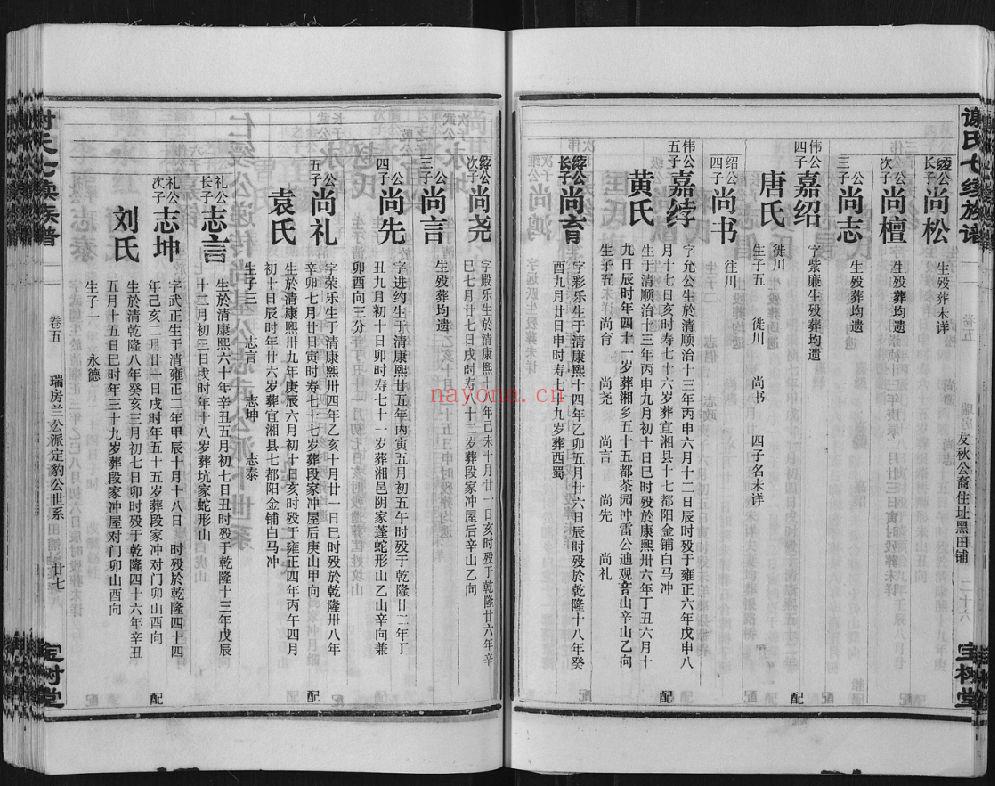 谢氏七续族谱
友秋公裔住址黑田铺
宝树堂
绥公长子 尚松 生殁葬未详
公次子 尚檀 生殁葬均遗
公三子 尚志 生殁葬均遗
伟公四子 嘉绍 字紫廉生殁葬均遗 配
唐氏 生子五 徙川 尚书 四子名未详
徙川
绍公子 尚书 往川
伟公五子 嘉綍 字允公生於清顺治十三年丙申六月十二日辰时殁于雍正六年戊申八
月十七日亥时寿七十六岁葬宜湘县十七都阳金铺白马冲 配
黄氏 生于清顺治十三年丙申九月初十日巳时殁於康熙卅六年丁丑六月十
九日辰时年四十一岁葬湘乡五十五都茶园冲雷公迪观音山辛山乙向
生子五 尚育 尚尧 尚言 尚先 尚礼
綍公长子 尚育 字彩乐生于清康熙十四年乙卯五月廿六日辰时殁於乾隆十八年癸
酉九月廿九日申时寿七十九岁葬西蜀
綍公次子 尚尧 字殿乐生於清康熙十八年己未十月廿一日亥时殁于乾隆廿六年辛
巳七月廿七日戌时寿八十三岁葬段家冲屋后辛山乙向
公三子 尚言 生殁葬均遗
公四子 尚先 字进约生于清康熙廿五年丙寅五月初五午时殁于乾隆廿二年丁
丑九月初十日卯时寿七十一岁葬湘邑阴家蓬蛇形山乙山辛向兼
卯酉向三分
公五子 尚礼 字荣乐生于清康熙卅四年乙亥十月廿一日巳时殁於乾隆卅八年
辛卯七月廿日寅时寿七十七岁葬段家冲屋后庚山甲向 配
袁氏 生於清康熙卅九年庚辰六月初十日亥时殁于雍正四年丙午四月
初十日辰时年廿六岁葬宜湘县七都阳金铺白马冲
生子三 志言 志坤 志泰
礼公长子 志言 生於清康熙六十年辛丑五月初七日丑时殁于乾隆十三年戊辰
十二月初三日戌时年廿八岁葬坑家蛇形山
礼公次子 志坤 字武正生于清雍正二年甲辰十月十八日 时殁於乾隆四十四
年己亥二月廿一日戌时年五十五岁葬段家冲对门卯山酉向 配
刘氏 生於清乾隆八年癸亥三月初七日卯时殁于乾隆四十六年辛丑
五月十五日巳时年三十九岁葬段家冲屋对门卯山酉向
生子一 永德
卷五 瑞房兰公派定豹公世系 廿七
宝树堂
nayona.cn